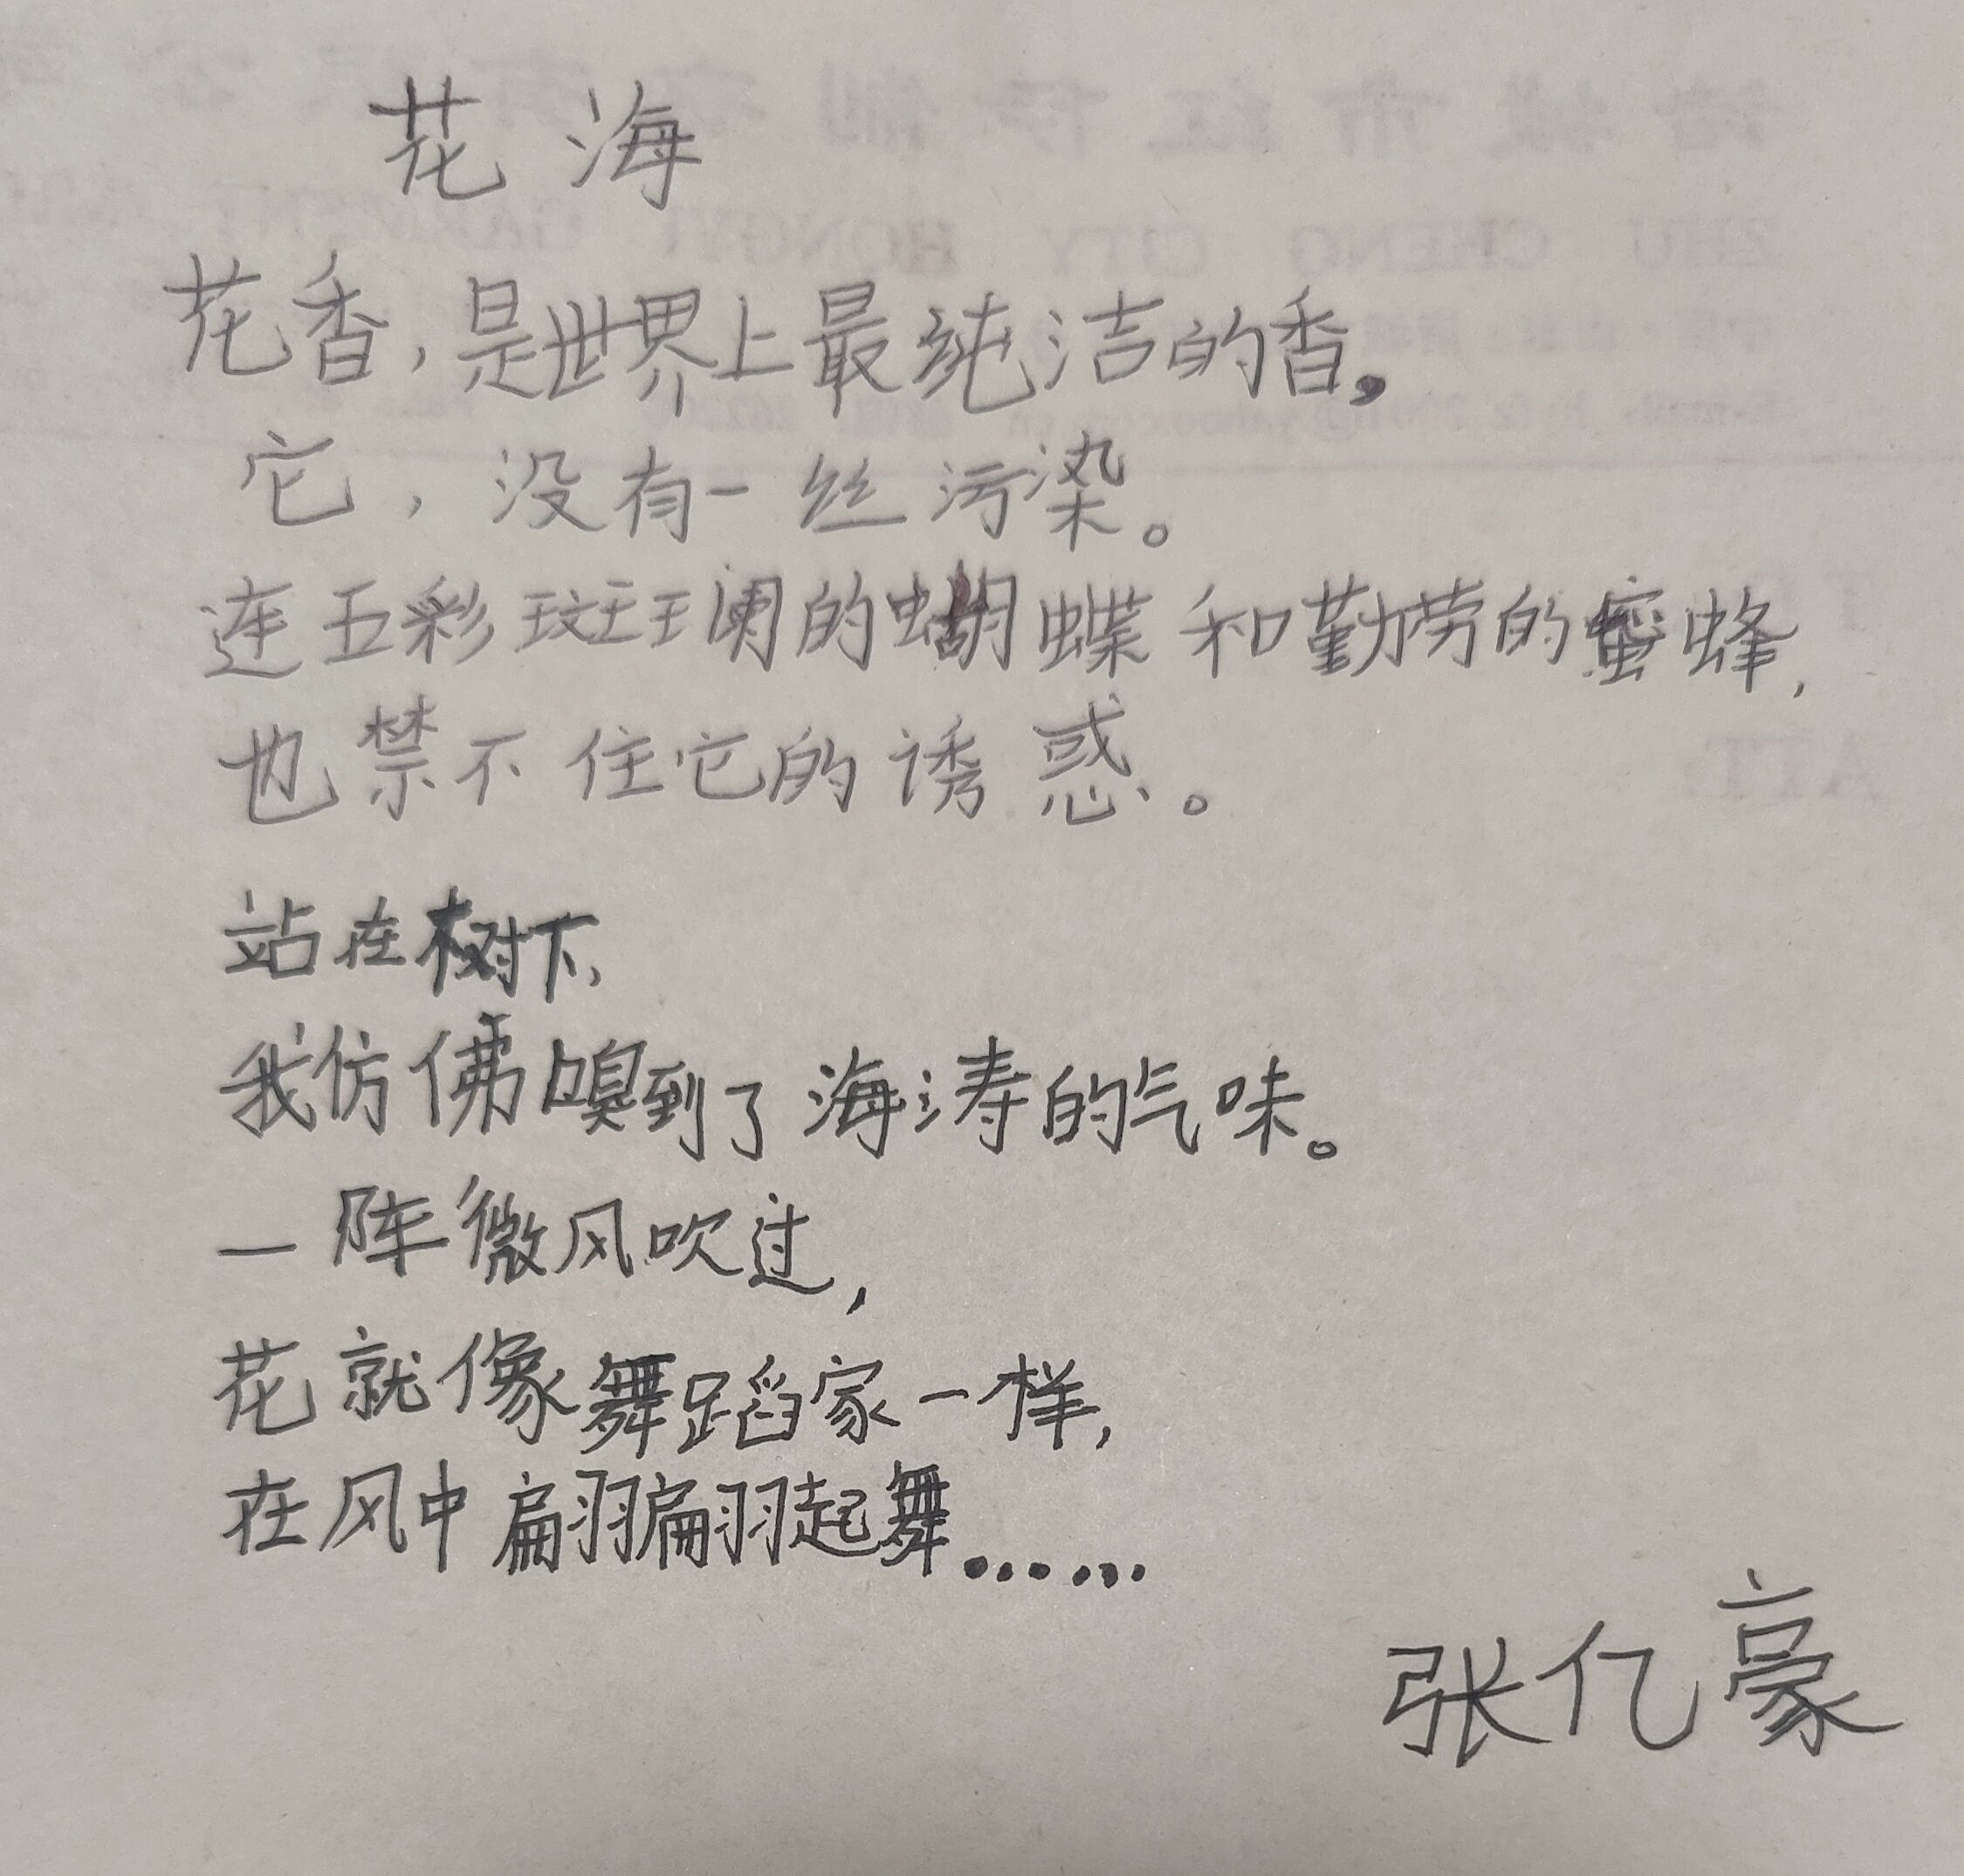 花海
花香,是世界上最纯洁的香,
它,没有一丝污染。
连五彩斑斓的蝴蝶和勤劳的蜜蜂,
也禁不住它的诱惑。
站在树下,
我仿佛嗅到了海涛的气味。
一阵微风吹过,
花就像舞蹈家一样,
在风中翩翩起舞……
张亿豪